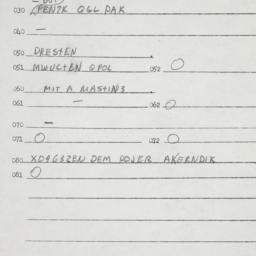 030 PENZK Q6L DAK
040 —
050 DRESTEN
051 MWUCTEN OPOL 052 O
060 MIT A MASTINS
061 — 062 O
070 —
071 O 072 O
080 XO4GSZEN DEM DOJER AKERNDIK
081 O